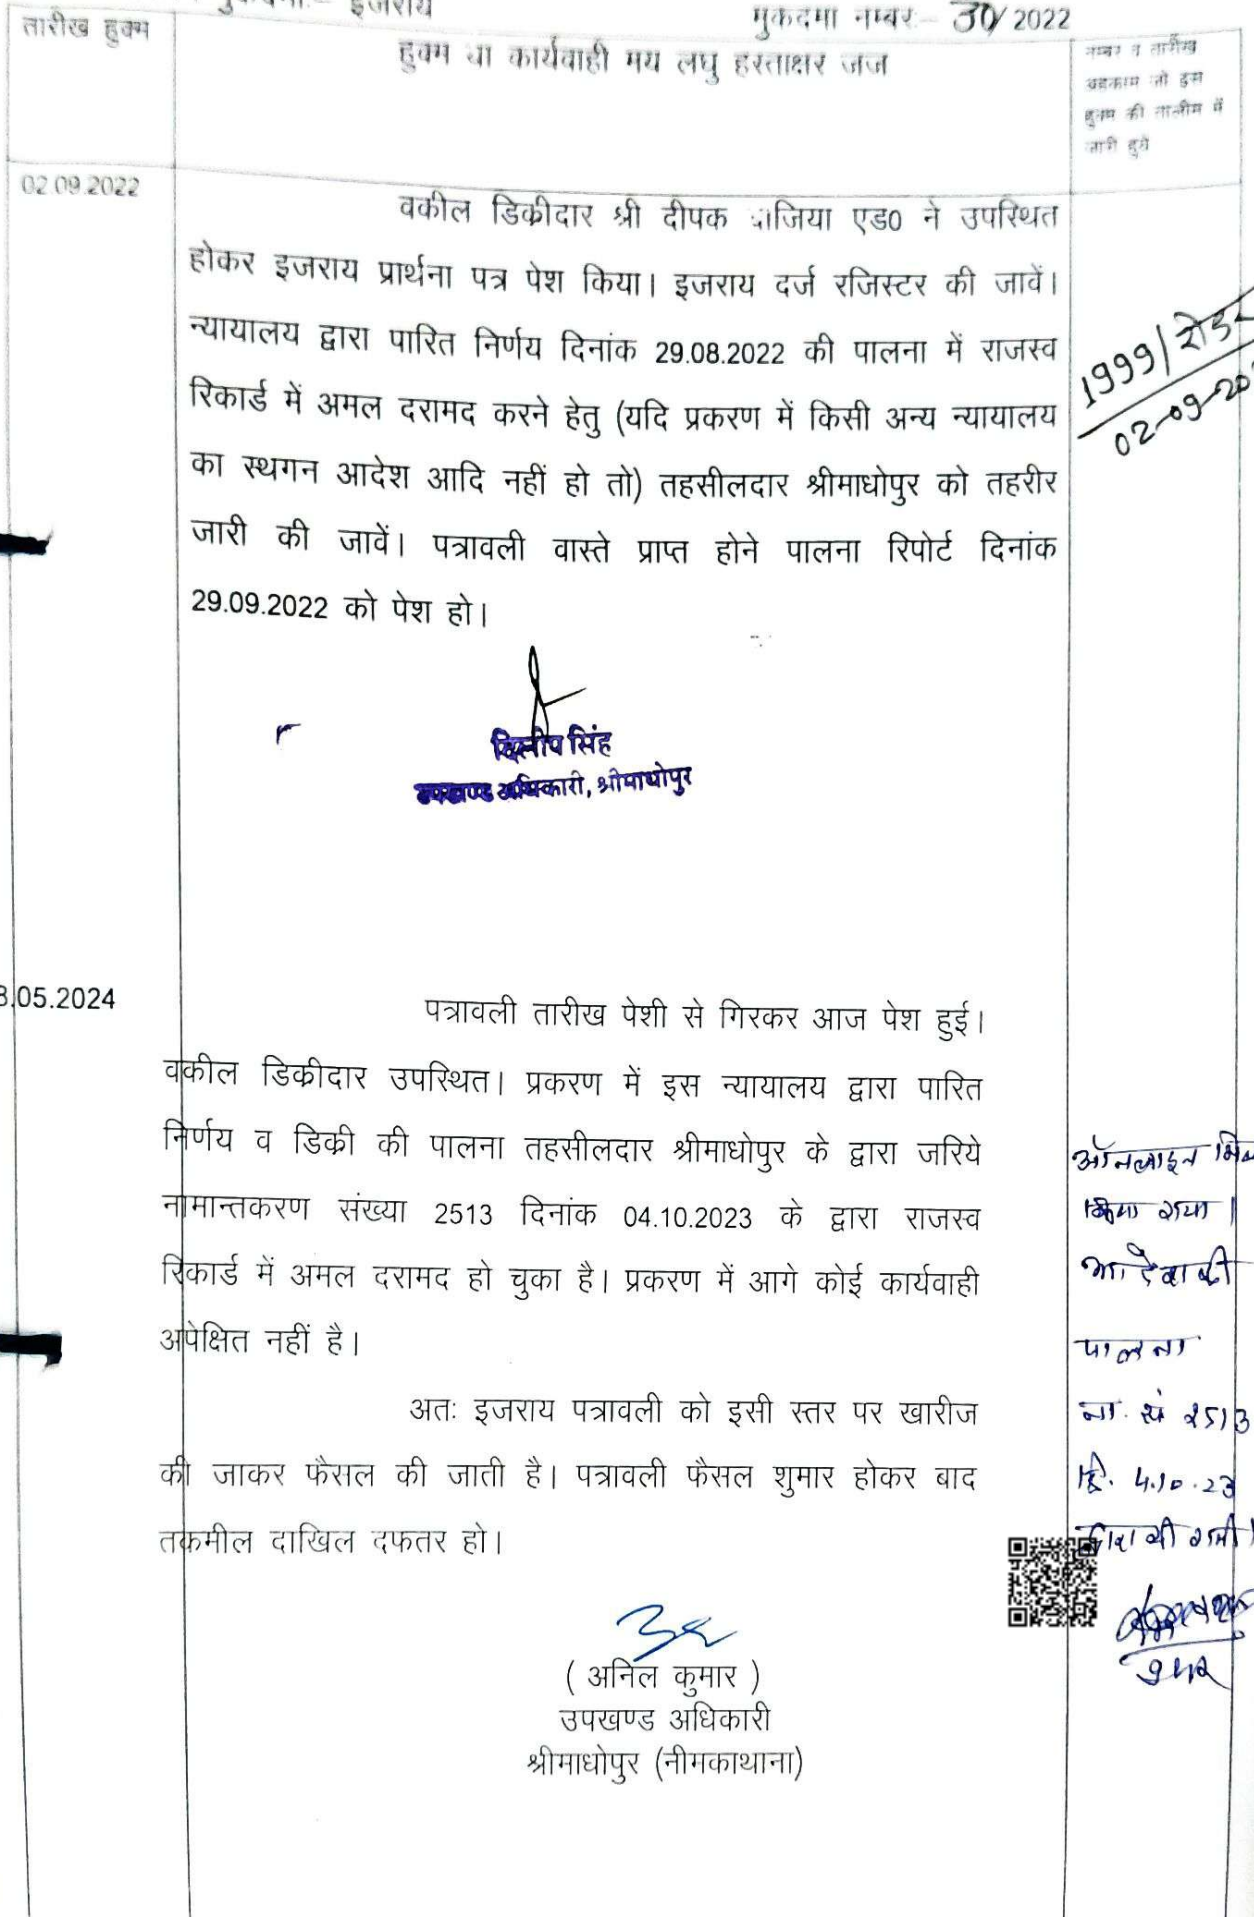 इजराय
मुकदमा नम्बर:- 30/2022
तारीख हुक्म
हुक्म या कार्यवाही मय लघु हस्ताक्षर जज
नम्बर व तारीख
अहकाम जो इस
हुक्म की तालीम में
जारी हुये
02.09.2022
वकील डिक्रीदार श्री दीपक एड0 ने उपस्थित
होकर इजराय प्रार्थना पत्र पेश किया। इजराय दर्ज रजिस्टर की जावें।
न्यायालय द्वारा पारित निर्णय दिनांक 29.08.2022 की पालना में राजस्व
रिकार्ड में अमल दरामद करने हेतु (यदि प्रकरण में किसी अन्य न्यायालय
का स्थगन आदेश आदि नहीं हो तो) तहसीलदार श्रीमाधोपुर को तहरीर
जारी की जावें। पत्रावली वास्ते प्राप्त होने पालना रिपोर्ट दिनांक
29.09.2022 को पेश हो।
1999/रीडर
02-09-20
दिलीप सिंह
उपखण्ड अधिकारी, श्रीमाधोपुर
8.05.2024
पत्रावली तारीख पेशी से गिरकर आज पेश हुई।
वकील डिक्रीदार उपस्थित। प्रकरण में इस न्यायालय द्वारा पारित
निर्णय व डिक्री की पालना तहसीलदार श्रीमाधोपुर के द्वारा जरिये
नामान्तकरण संख्या 2513 दिनांक 04.10.2023 के द्वारा राजस्व
रिकार्ड में अमल दरामद हो चुका है। प्रकरण में आगे कोई कार्यवाही
अपेक्षित नहीं है।
अतः इजराय पत्रावली को इसी स्तर पर खारीज
की जाकर फैसल की जाती है। पत्रावली फैसल शुमार होकर बाद
तकमील दाखिल दफतर हो।
ऑनलाइन
किया गया।
पालना
ना. सं 2513
दि. 4.10.23
द्वारा की गयी।
( अनिल कुमार )
उपखण्ड अधिकारी
श्रीमाधोपुर (नीमकाथाना)